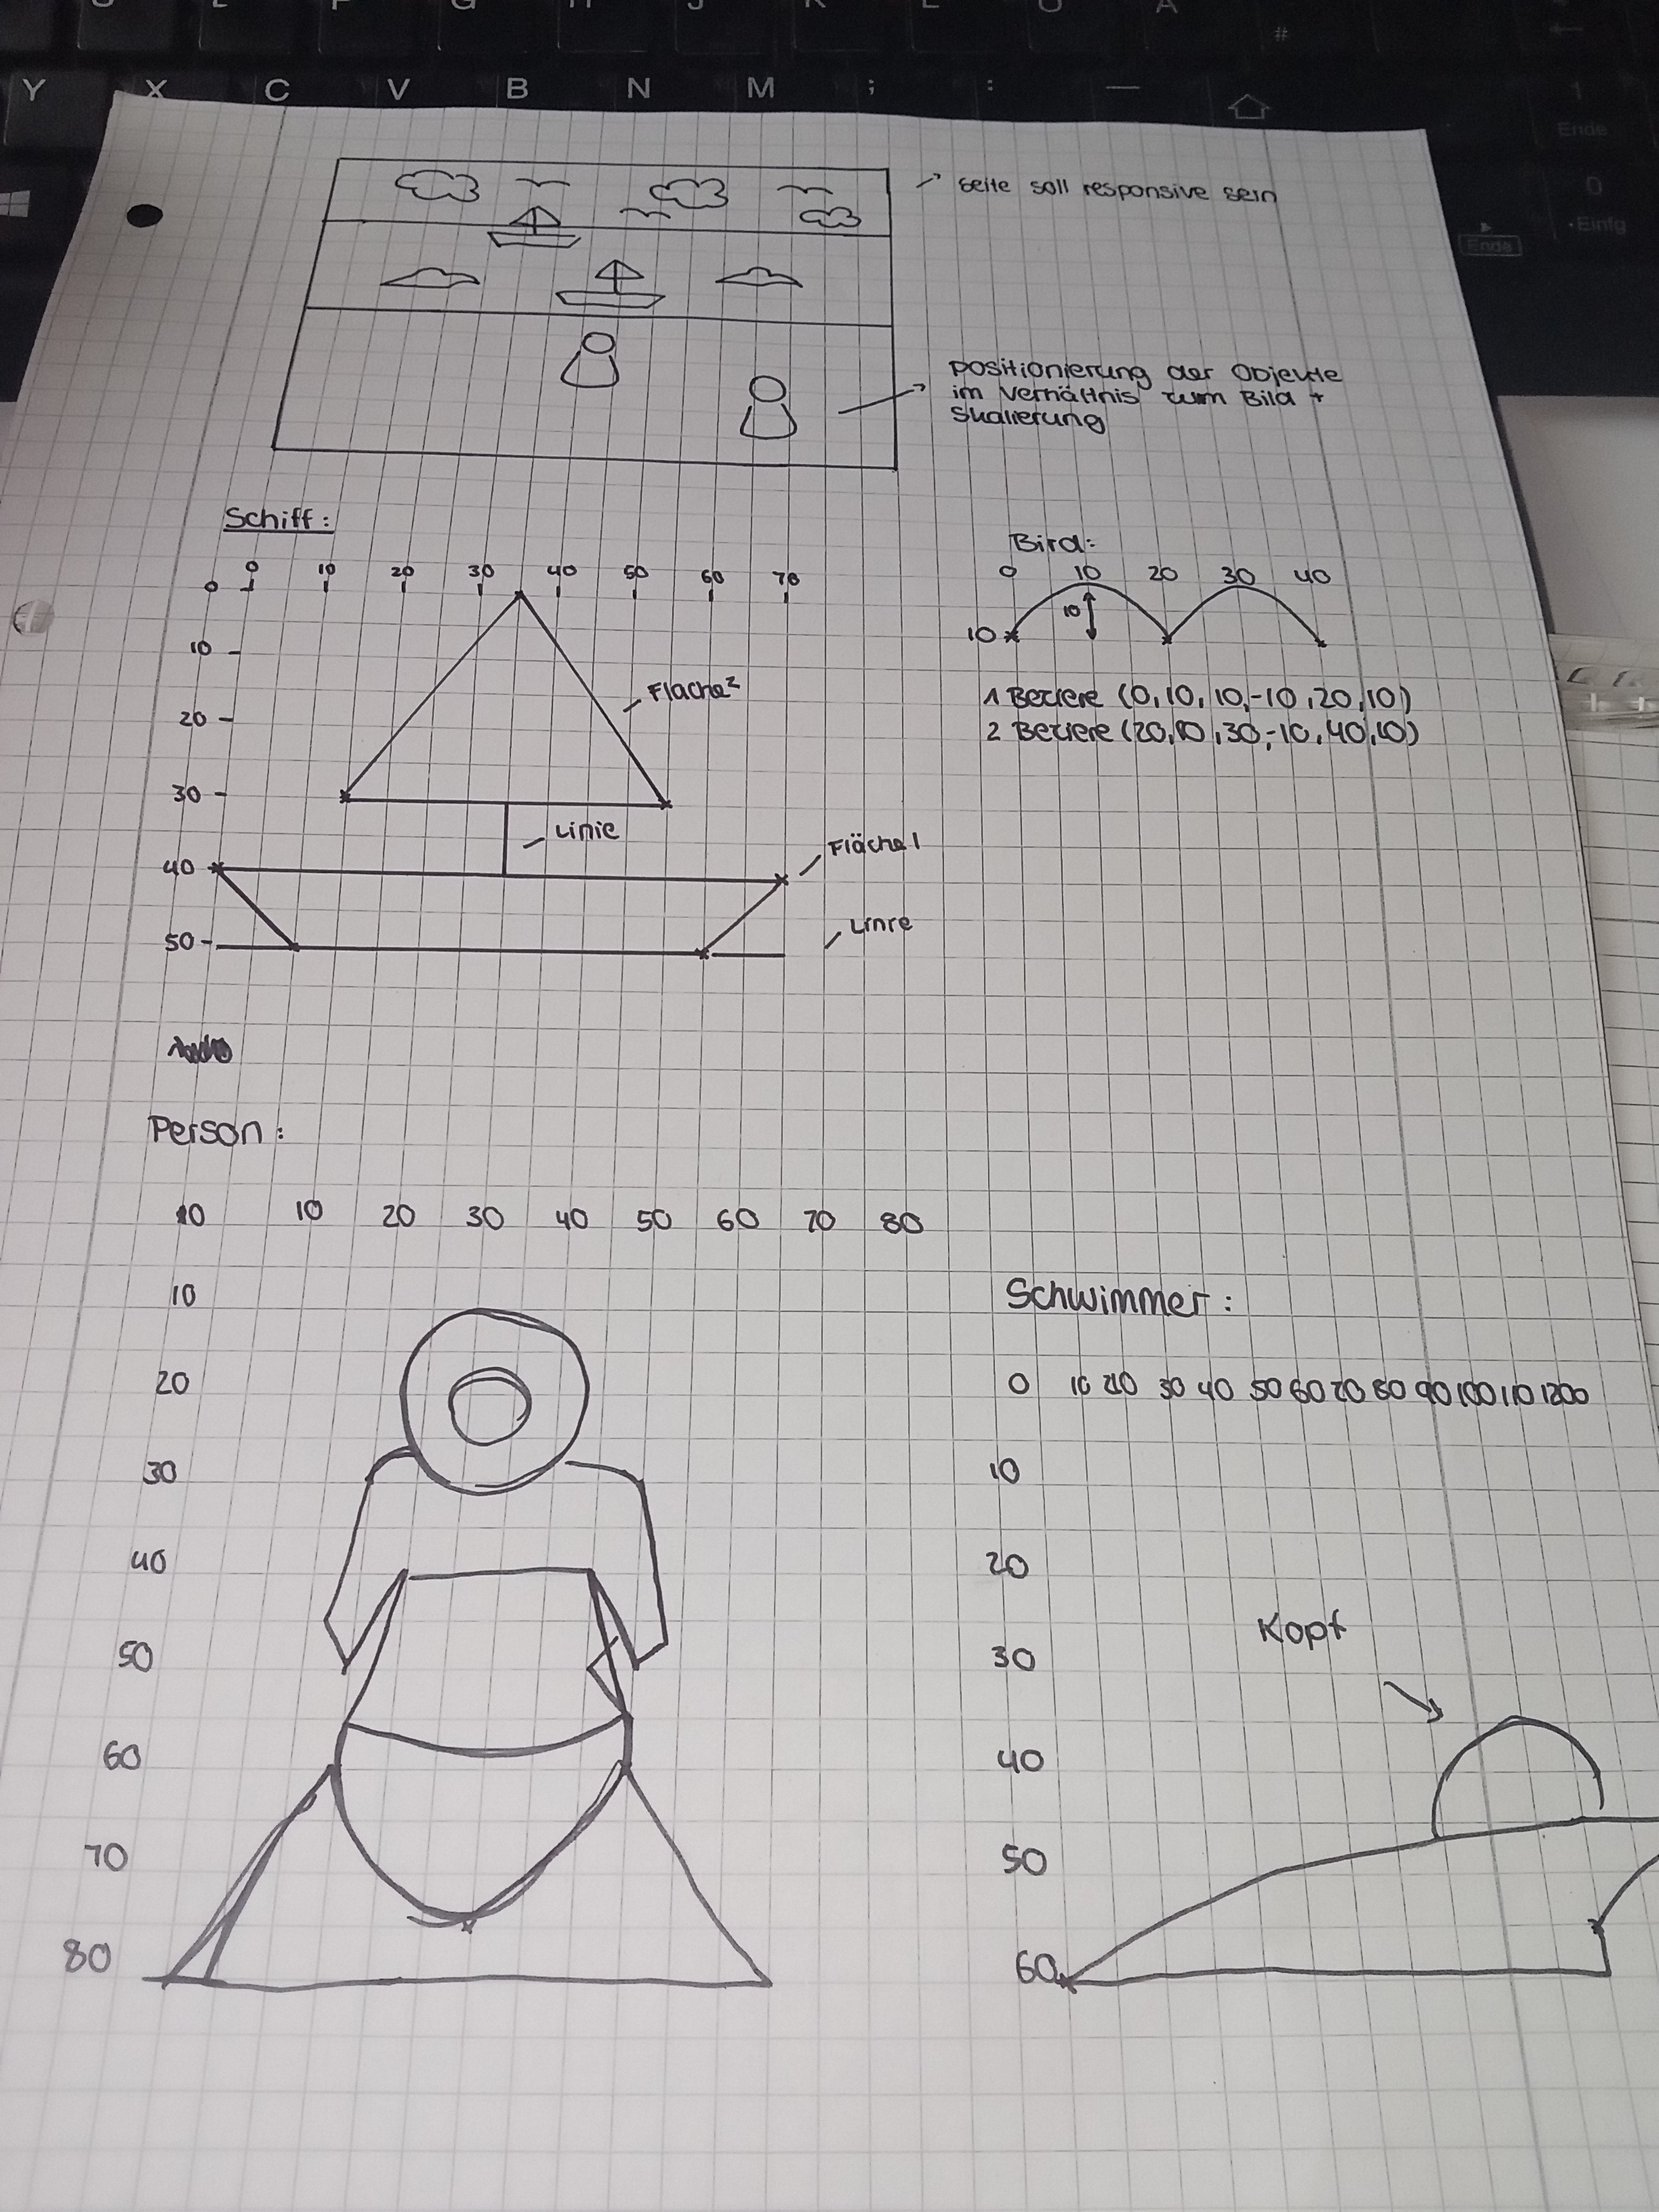 Y X C V B N M ; : —
#
1
Ende
0
Einfg
Ende
seite soll responsive sein
Positionierung der Objekte
im Verhältnis zum Bild +
Skalierung
Schiff:
0 10 20 30 40 50 60 70
0
10
20
30
40
50
Fläche²
Linie
Fläche1
Linie
Bird:
0 10 20 30 40
10
10
1 Beziere (0,10,10,-10,20,10)
2 Beziere (20,10,30,-10,40,10)
Person:
10 20 30 40 50 60 70 80
10
20
30
40
50
60
70
80
Schwimmer:
0 10 20 30 40 50 60 70 80 90 100 110 1200
10
20
30
40
50
60
Kopf